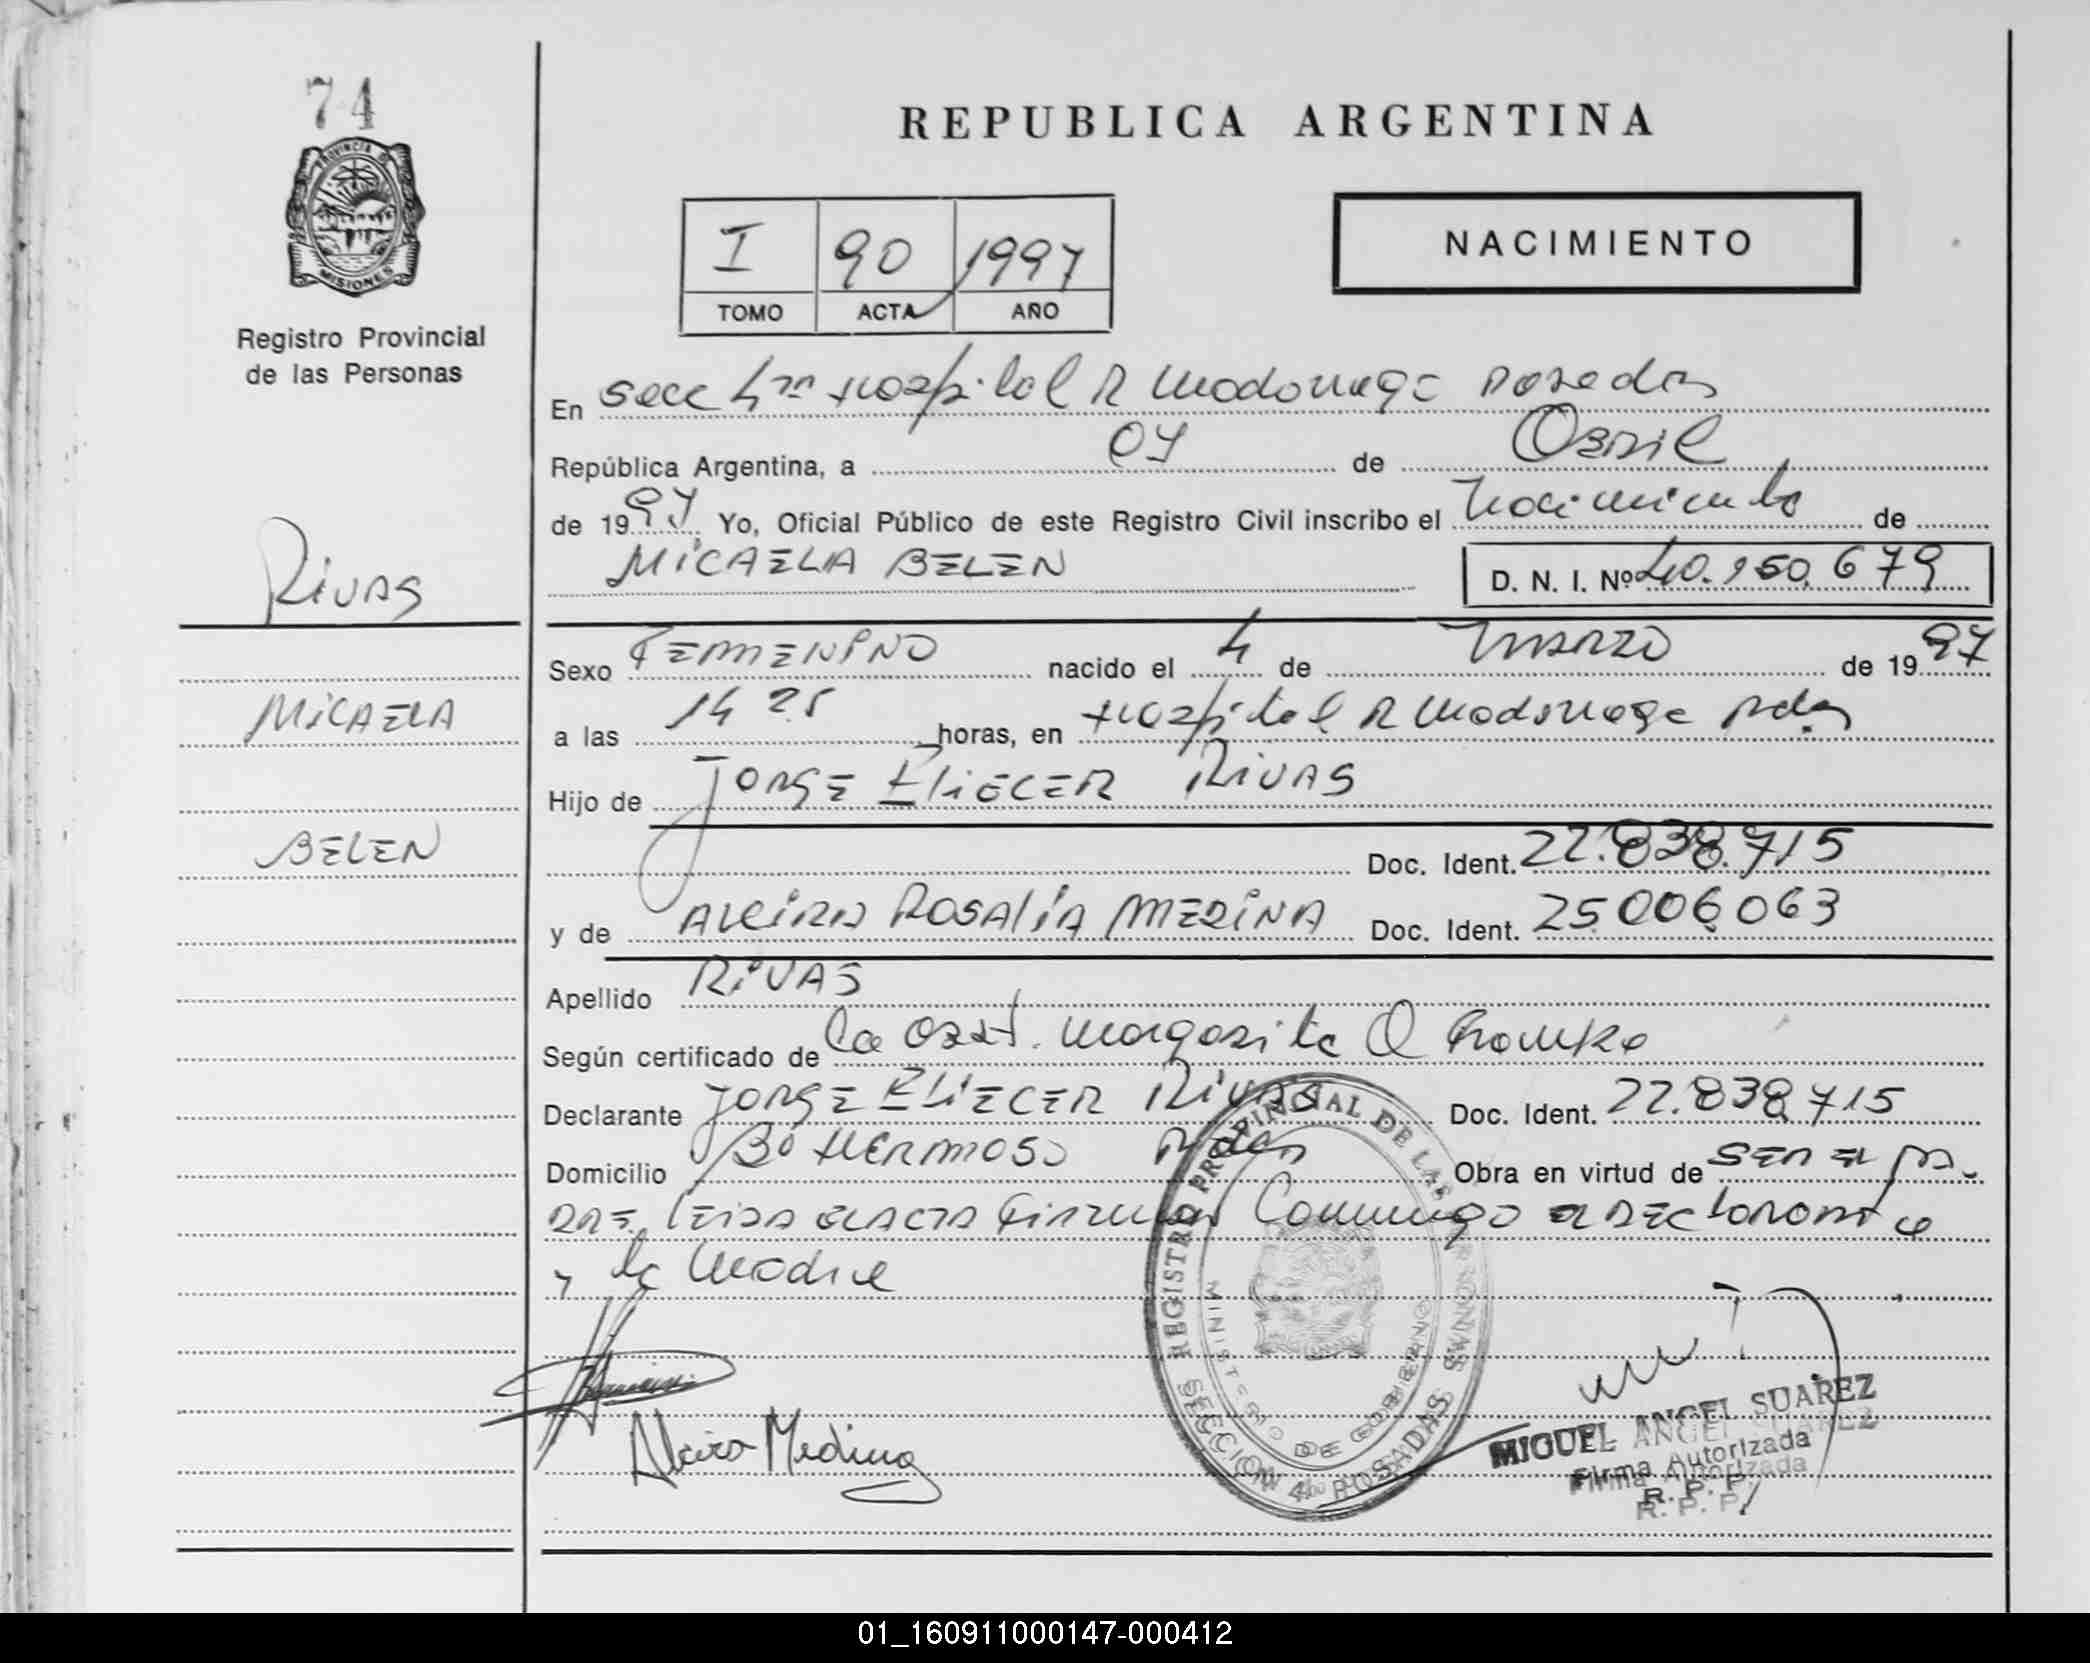 74
PROVINCIA DE
MISIONES
Registro Provincial
de las Personas
REPUBLICA ARGENTINA
I 90 1997
TOMO ACTA AÑO
NACIMIENTO
En Secc 4ta Hospital R Madariaga Posadas
República Argentina, a 07 de Abril
de 1997 Yo, Oficial Público de este Registro Civil inscribo el Nacimiento de
MICAELA BELEN D. N. I. Nº 40.150.679
Rivas
Sexo FEMENINO nacido el 4 de Marzo de 1997
MICAELA
a las 14 25 horas, en Hospital R Madariaga Pdas
Hijo de JORGE ELIECER RIVAS
BELEN
Doc. Ident. 22.838.715
y de ALCIRA ROSALIA MEDINA Doc. Ident. 25.006.063
Apellido RIVAS
Según certificado de la Obst. Margarita
Declarante JORGE ELIECER RIVAS Doc. Ident. 22.838.715
Domicilio Bº HERMOSO Pdas Obra en virtud de SER EL PA-
DRE. LEIDA EL ACTA FIRMAN Conmigo el DECLARANTE
y la Madre
Alcira Medina
REGISTRO PROVINCIAL DE LAS PERSONAS
MINISTERIO DE GOBIERNO
SECCION 4ta POSADAS
MIGUEL ANGEL SUAREZ
Firma Autorizada
R. P. P.
01_160911000147-000412